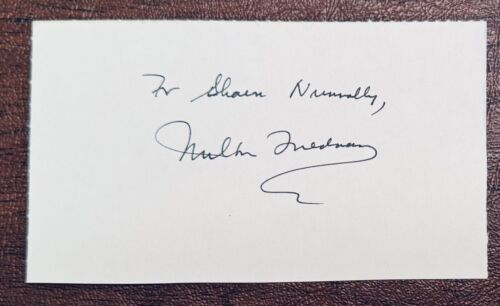 For Shaen Nunnally,
Milton Friedman